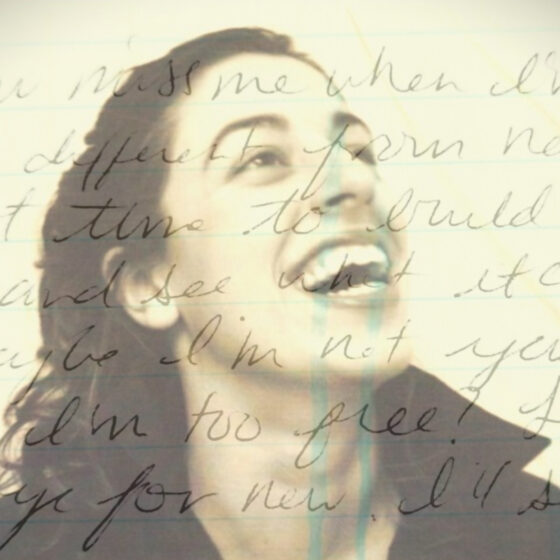 miss me when I'
different from ne
t time to build
and see what it
aybe I'm not you
I'm too free?
ye for new. I'll s